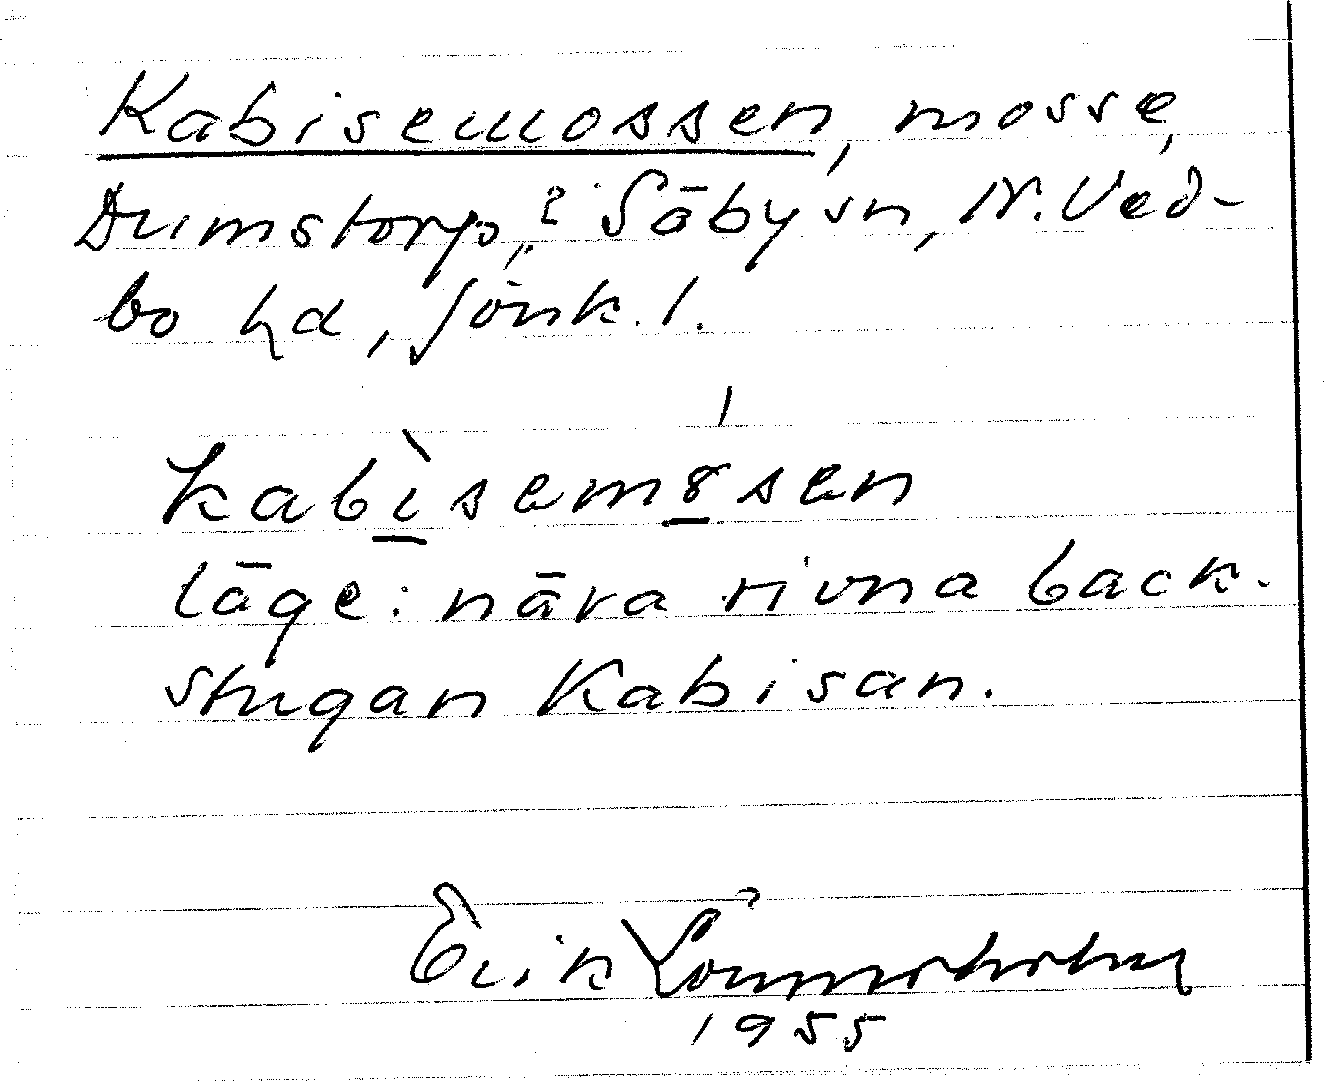 Kabisemossen, mosse,
Dumstorp,? Säby sn, N. Ved-
bo hd, Jönk. l.
kabìsemȣ́sen
läge: nära rivna back-
stugan Kabisan.
Erik
1955